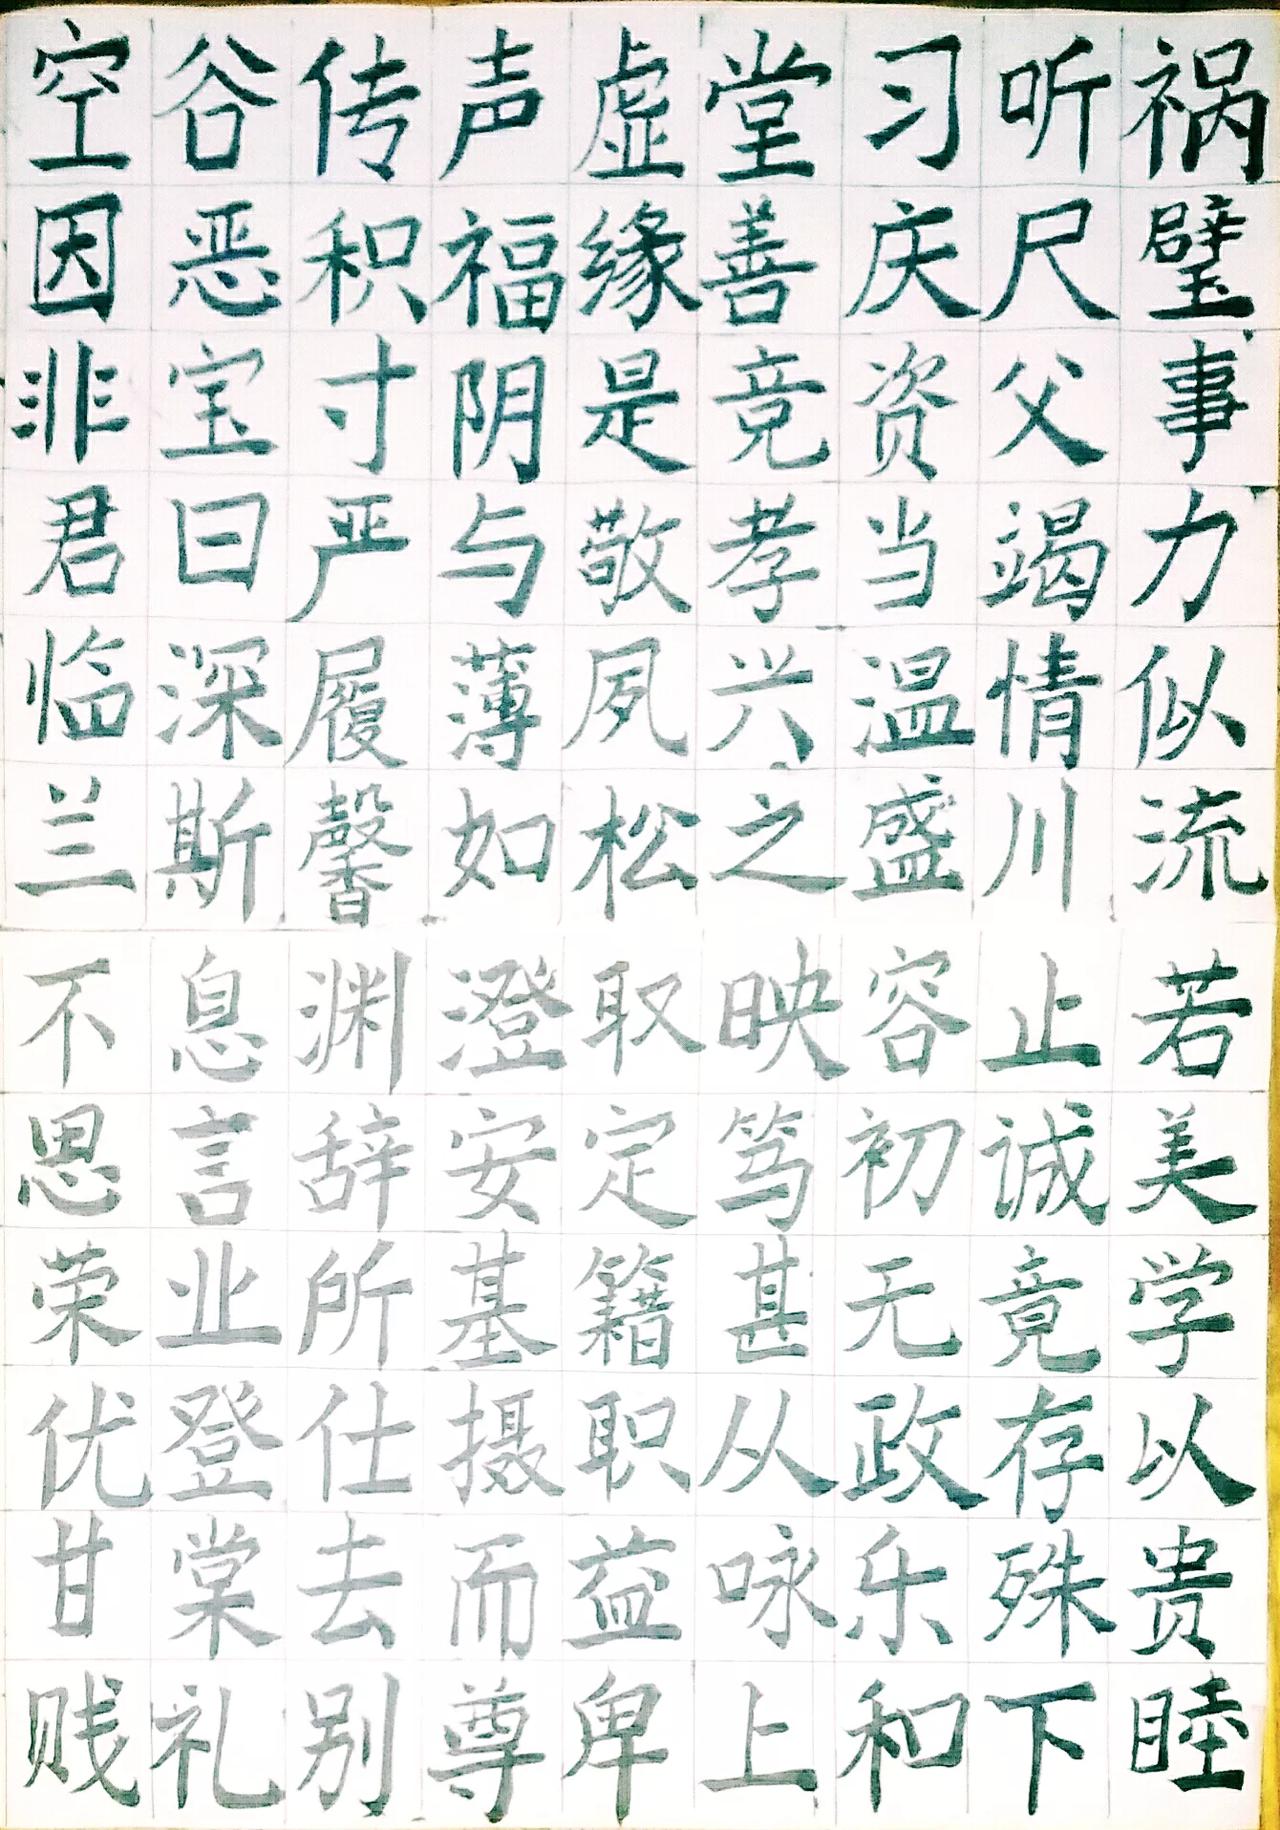 空谷传声虚堂习听祸
因恶积福缘善庆尺璧
非宝寸阴是竞资父事
君曰严与敬孝当竭力
临深履薄夙兴温情似
兰斯馨如松之盛川流
不息渊澄取映容止若
思言辞安定笃初诚美
荣业所基籍甚无竟学
优登仕摄职从政存以
甘棠去而益咏乐殊贵
贱礼别尊卑上和下睦